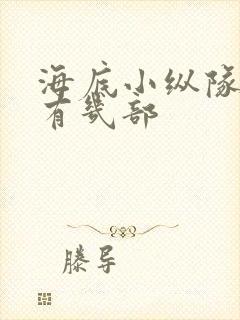 海底小纵队
有几部
滕导